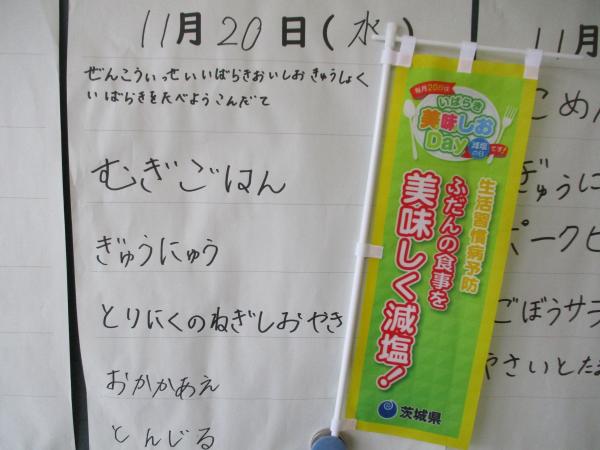 11月20日(水)
ぜんこういっせいいばらきおいしおきゅうしょく
いばらきをたべようこんだて
むぎごはん
ぎゅうにゅう
とりにくのねぎしおやき
おかかあえ
とんじる
毎月20日は
いばらき
美味しお
Day
減塩の日
です!
生活習慣病予防
ふだんの食事を
美味しく減塩!
茨城県
11月
こめ
ぎゅうに
ポーク
ごぼうサラ
やさいとたま